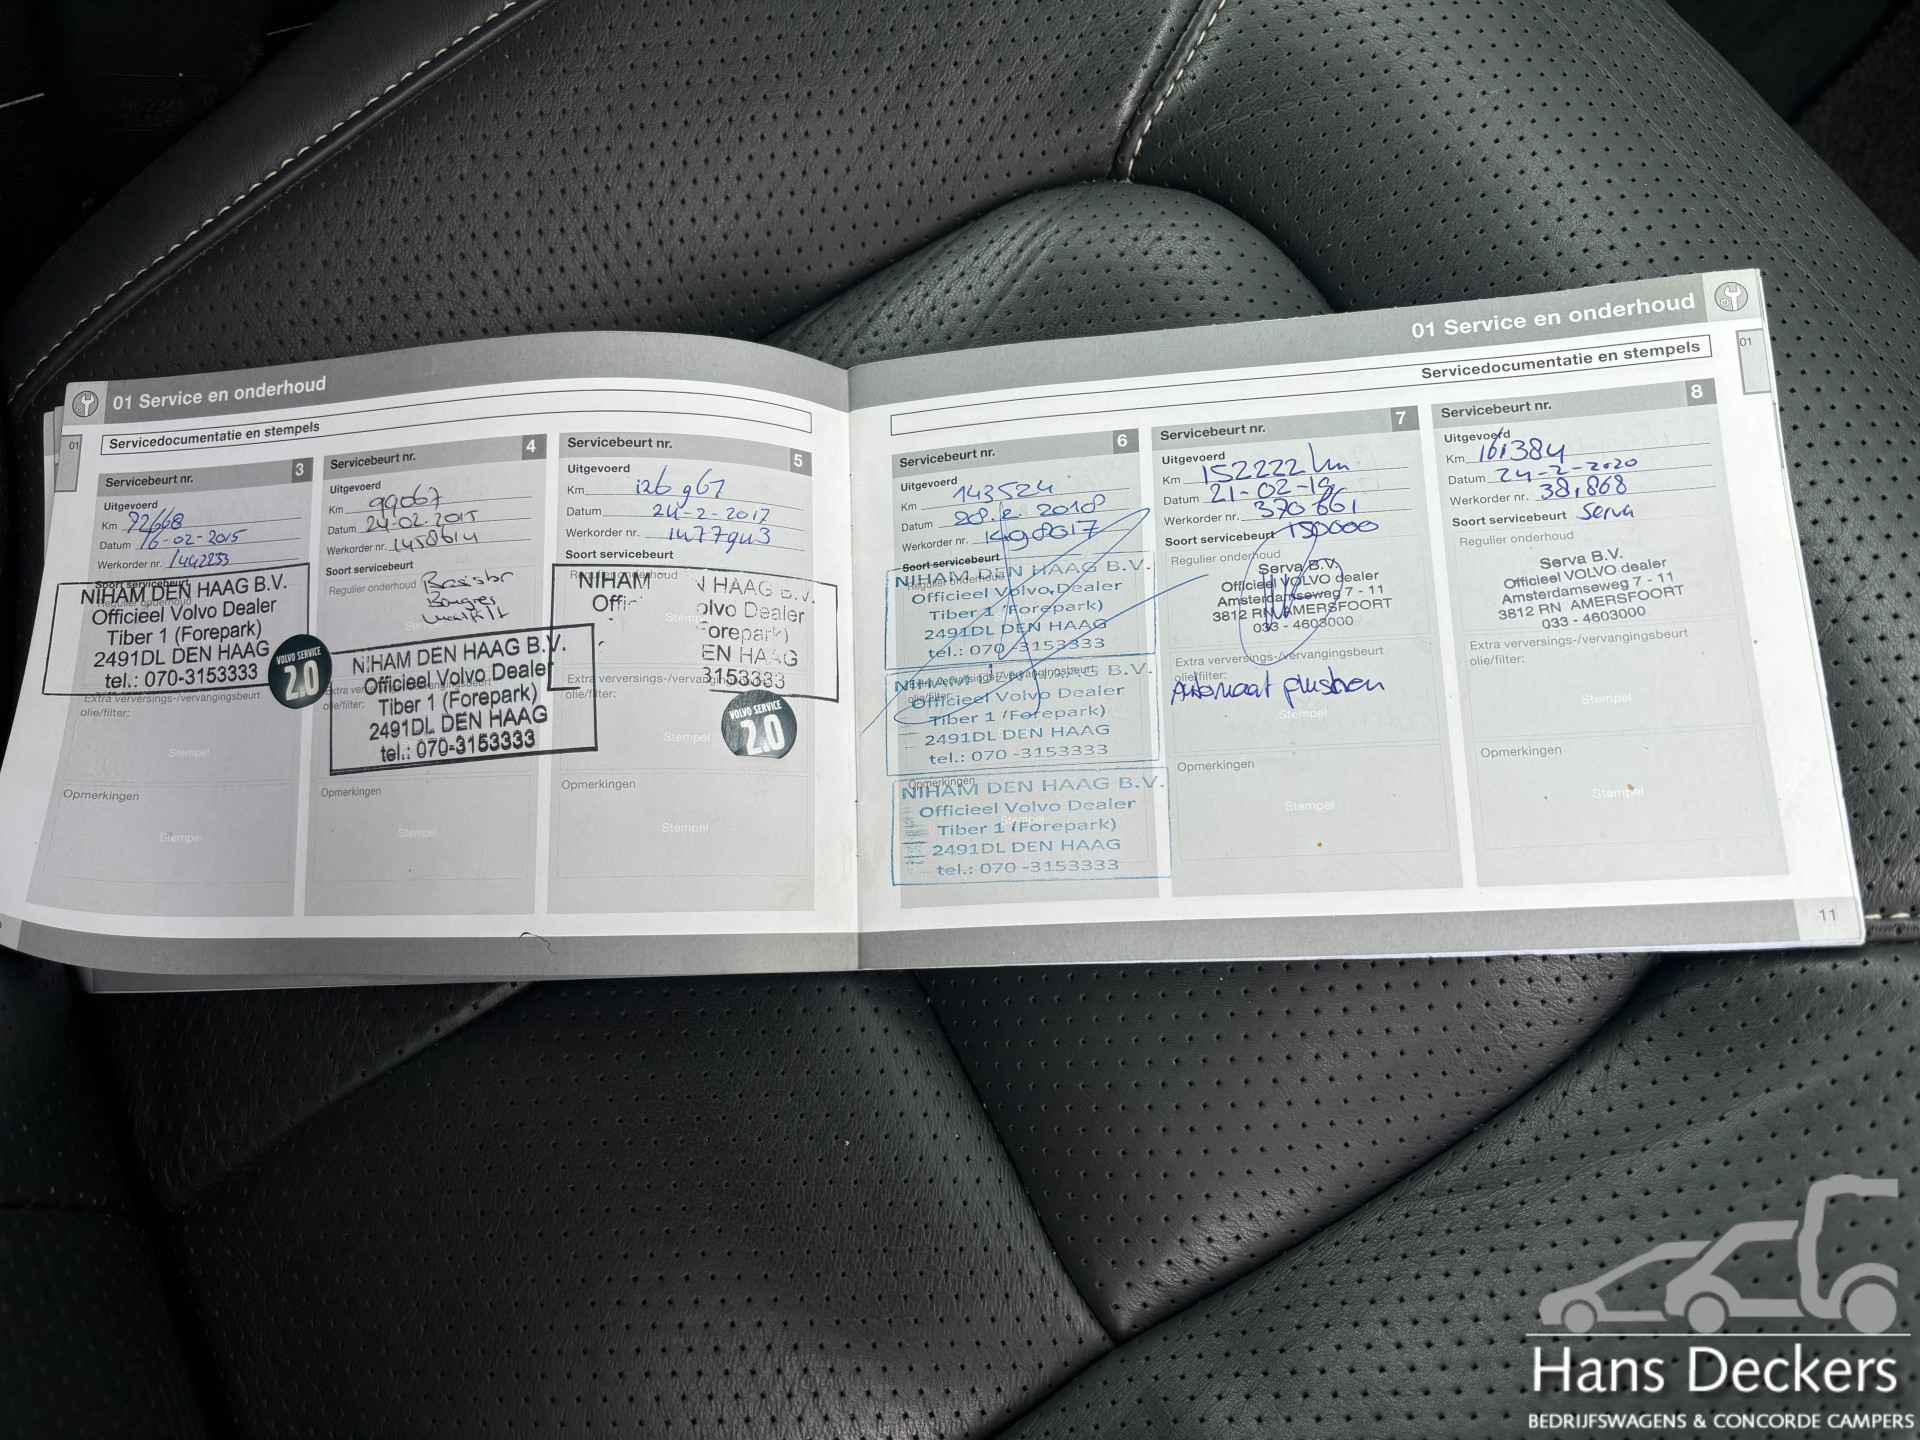 01 Service en onderhoud
01
Servicedocumentatie en stempels
Servicebeurt nr. 3
Uitgevoerd
Km 92668
Datum 16-02-2015
1442253
Soort servicebeurt
Regulier onderhoud
NIHAM DEN HAAG B.V.
Officieel Volvo Dealer
Tiber 1 (Forepark)
2491DL DEN HAAG
tel.: 070-3153333
VOLVO SERVICE
2.0
Extra verversings-/vervangingsbeurt
olie/filter:
Stempel
Opmerkingen
Stempel
Servicebeurt nr. 4
Uitgevoerd
Km 99067
Datum 24-02-2015
Werkorder nr. 1458614
Soort servicebeurt
Regulier onderhoud
NIHAM DEN HAAG B.V.
Officieel Volvo Dealer
Tiber 1 (Forepark)
2491DL DEN HAAG
tel.: 070-3153333
Extra verversings-/vervangingsbeurt
olie/filter:
Opmerkingen
Stempel
Servicebeurt nr. 5
Uitgevoerd
Km 126967
Datum 24-2-2017
Werkorder nr. 1477943
Soort servicebeurt
Regulier onderhoud
NIHAM N HAAG B.V.
Offi olvo Dealer
orepark)
EN HAAG
3153333
Extra verversings-/vervangingsbeurt
olie/filter:
Stempel
VOLVO SERVICE
2.0
Opmerkingen
Stempel
01 Service en onderhoud
01
Servicedocumentatie en stempels
Servicebeurt nr. 6
Uitgevoerd
Km 143524
Datum 28.2.2018
Werkorder nr. 1498617
Soort servicebeurt
Regulier onderhoud
NIHAM DEN HAAG B.V.
Officieel Volvo Dealer
Tiber 1 (Forepark)
2491DL DEN HAAG
tel.: 070-3153333
NIHAM DEN HAAG B.V.
Officieel Volvo Dealer
Tiber 1 (Forepark)
2491DL DEN HAAG
tel.: 070-3153333
Opmerkingen
NIHAM DEN HAAG B.V.
Officieel Volvo Dealer
Tiber 1 (Forepark)
2491DL DEN HAAG
tel.: 070-3153333
Servicebeurt nr. 7
Uitgevoerd
Km 152222 km
Datum 21-02-19
Werkorder nr. 370661
Soort servicebeurt 150000
Regulier onderhoud
Serva B.V.
Officieel VOLVO dealer
Amsterdamseweg 7 - 11
3812 RN AMERSFOORT
033 - 4603000
Extra verversings-/vervangingsbeurt
olie/filter:
Automaat flushen
Stempel
Opmerkingen
Stempel
Servicebeurt nr. 8
Uitgevoerd
Km 161384
Datum 24-2-2020
Werkorder nr. 38,868
Soort servicebeurt Serva
Regulier onderhoud
Serva B.V.
Officieel VOLVO dealer
Amsterdamseweg 7 - 11
3812 RN AMERSFOORT
033 - 4603000
Extra verversings-/vervangingsbeurt
olie/filter:
Stempel
Opmerkingen
Stempel
11
Hans Deckers
BEDRIJFSWAGENS & CONCORDE CAMPERS